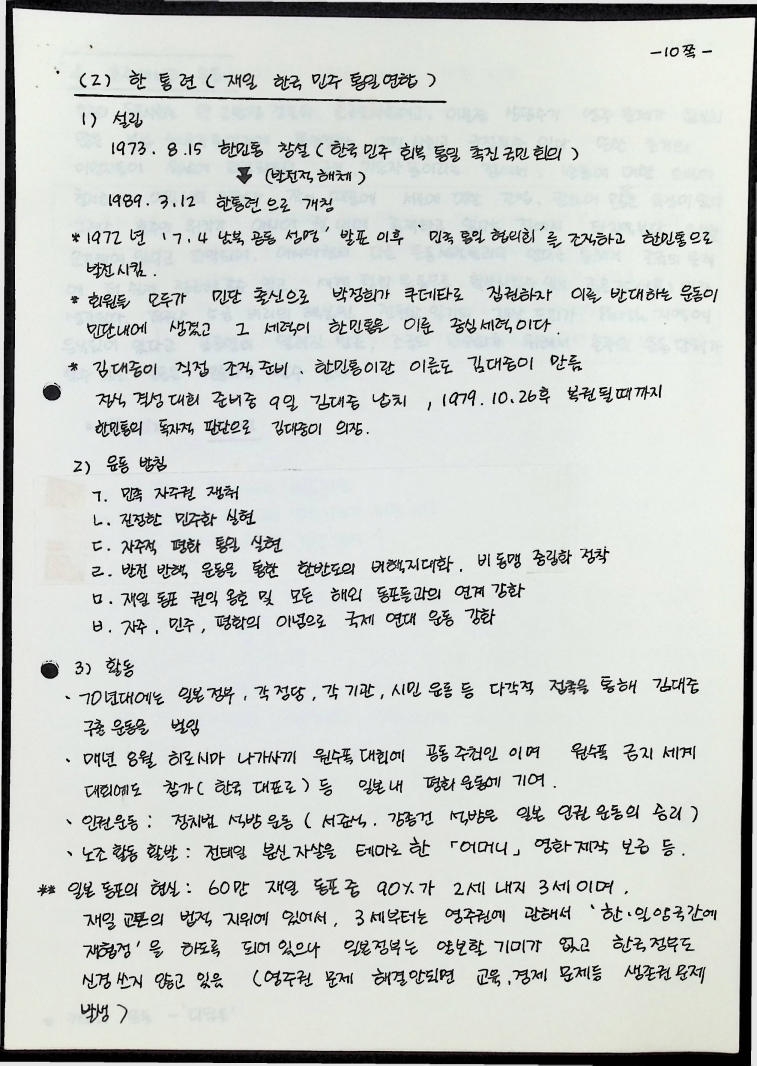 -10쪽-
(2) 한통련 ( 재일 한국 민주 통일연합 )
1) 설립
1973. 8.15 한민통 창설 ( 한국 민주 회복 통일 촉진 국민 회의 )
(발전적 해체)
1989. 3.12 한통련으로 개칭
* 1972년 '7.4 남북 공동 성명' 발표 이후 '민족 통일 협의회'를 조직하고 한민통으로
발전시킴.
* 회원들 모두가 민단 출신으로 박정희가 쿠데타로 집권하자 이를 반대하는 운동이
민단내에 생겼고 그 세력이 한민통을 이룬 중심세력이다.
* 김대중이 직접 조직 준비. 한민통이란 이름도 김대중이 만듬
정식 결성대회 준비중 9일 김대중 납치, 1979.10.26후 복권될때까지
한민통의 독자적 판단으로 김대중이 의장.
2) 운동 방침
ㄱ. 민족 자주권 쟁취
ㄴ. 진정한 민주화 실현
ㄷ. 자주적 평화 통일 실현
ㄹ. 반전 반핵 운동을 통한 한반도의 비핵지대화. 비동맹 중립화 정착
ㅁ. 재일 동포 권익 옹호 및 모든 해외 동포들과의 연계 강화
ㅂ. 자주, 민주, 평화의 이념으로 국제 연대 운동 강화
3) 활동
· 70년대에는 일본정부, 각 정당, 각 기관, 시민 운동 등 다각적 접촉을 통해 김대중
구출 운동을 벌임
· 매년 8월 히로시마 나가사끼 원수폭 대회에 공동 주최인 이며 원수폭 금지 세계
대회에도 참가( 한국 대표로 ) 등 일본내 평화 운동에 기여.
· 인권운동 : 정치범 석방 운동 ( 서준식. 강종건 석방은 일본 인권 운동의 승리 )
· 노조 활동 활발 : 전태일 분신 자살을 테마로 한 「어머니」 영화 제작 보급 등.
** 일본 동포의 현실 : 60만 재일 동포 중 90%가 2세 내지 3세 이며,
재일 교포의 법적 지위에 있어서, 3세부터는 영주권에 관해서 '한·일 양국간에
재협정'을 하도록 되어 있으나 일본정부는 양보할 기미가 없고 한국정부도
신경 쓰지 않고 있음 (영주권 문제 해결안되면 교육, 경제 문제등 생존권 문제
발생 )